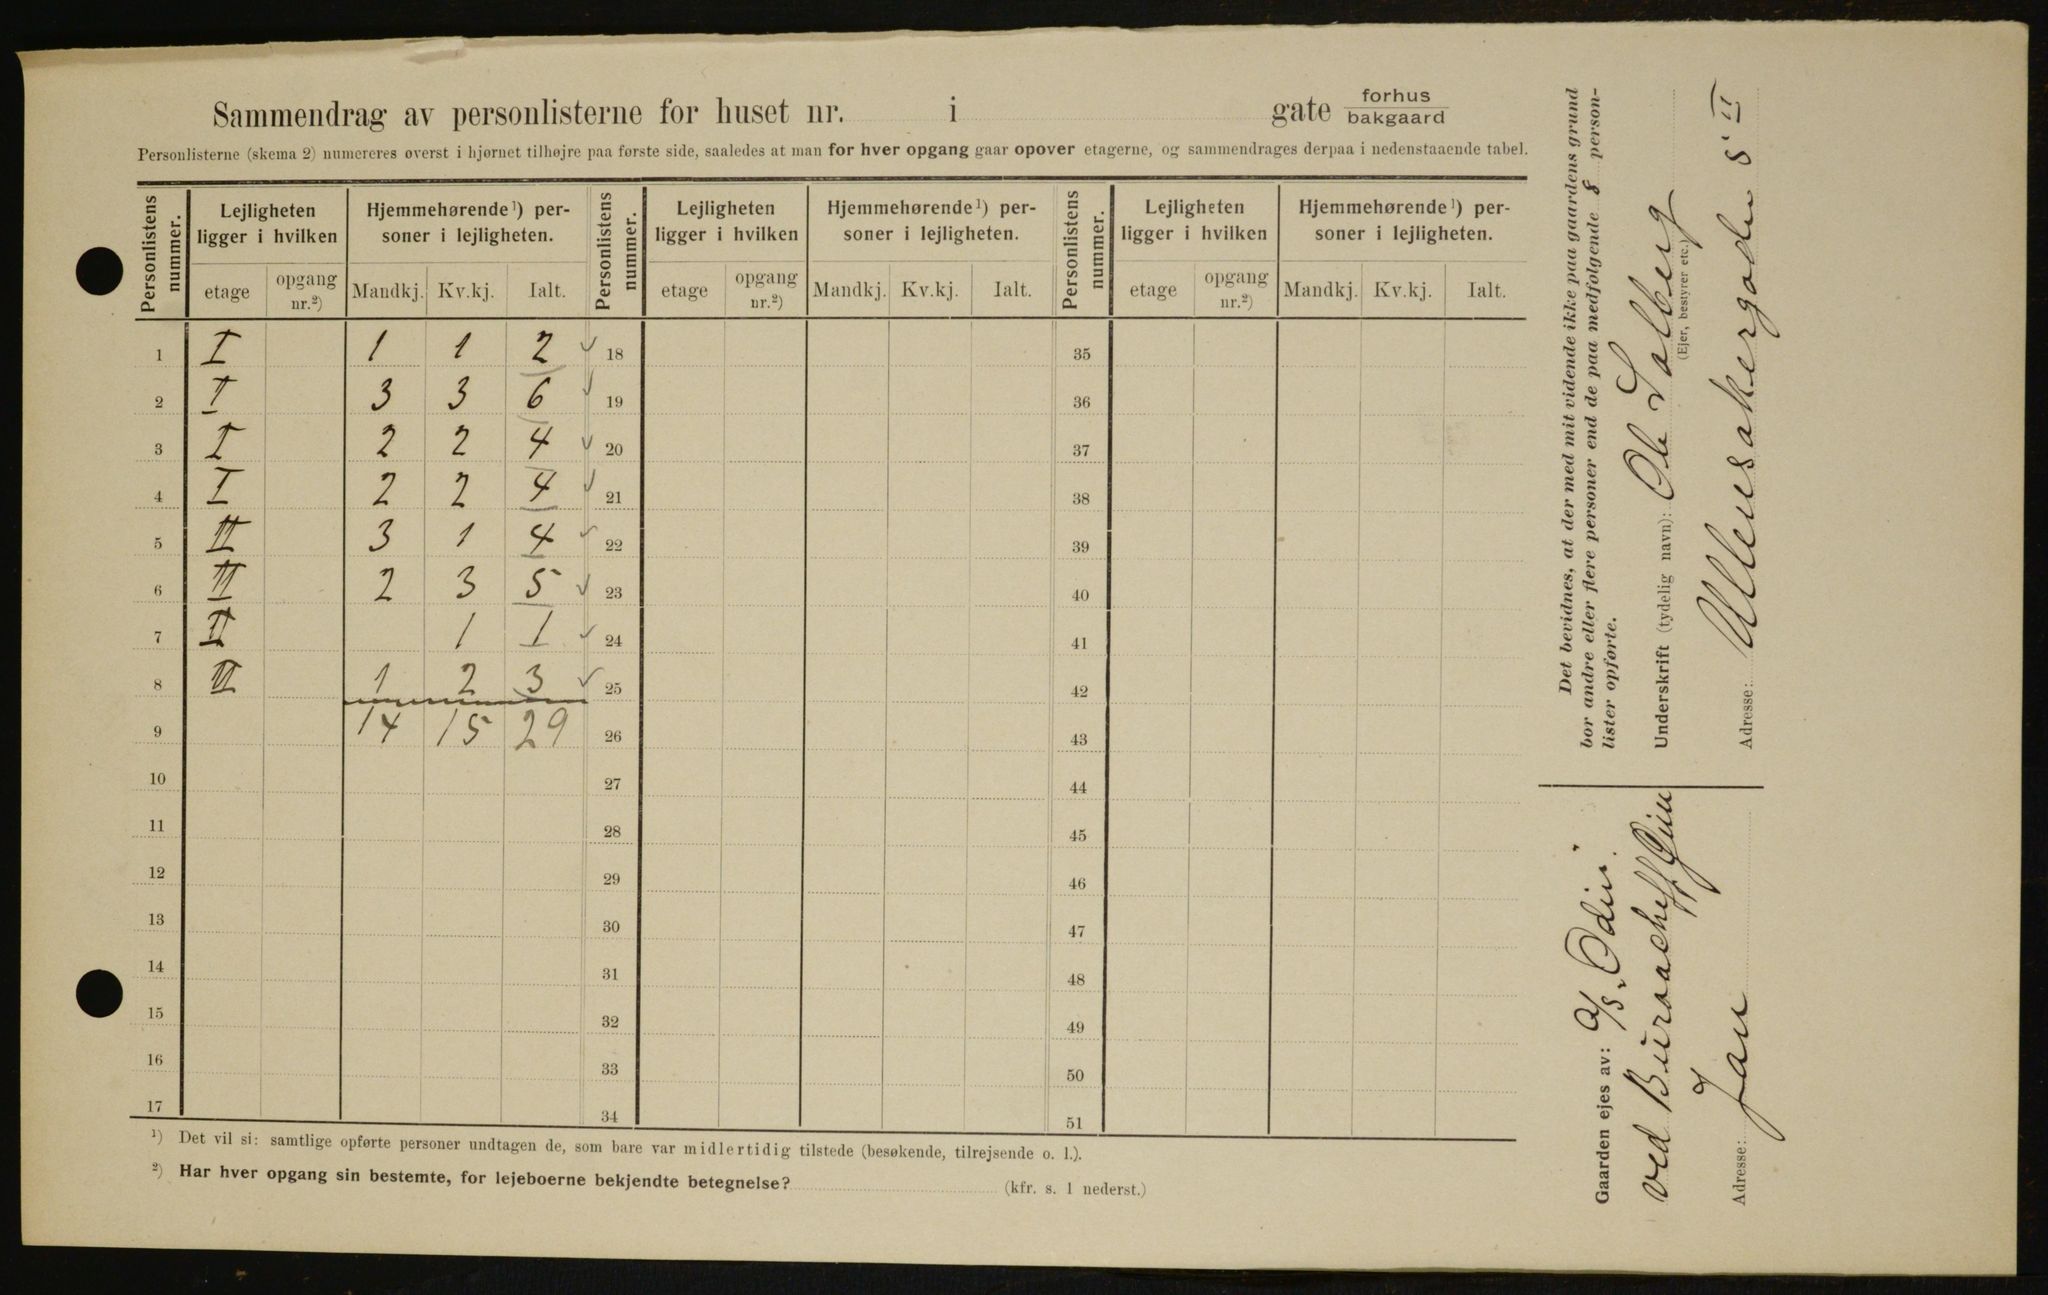 Sammendrag av personlisterne for huset nr. i gate forhus bakgaard
Personlisterne (skema 2) numereres øverst i hjørnet tilhøjre paa første side, saaledes at man for hver opgang gaar opover etagerne, og sammendrages derpaa i nedenstaaende tabel.
Personlistens nummer. Lejligheten ligger i hvilken Hjemmehørende 1) personer i lejligheten. Personlistens nummer. Lejligheten ligger i hvilken Hjemmehørende 1) personer i lejligheten. Personlistens nummer. Lejligheten ligger i hvilken Hjemmehørende 1) personer i lejligheten.
etage opgang nr.2) Mandkj. Kv.kj. Ialt. etage opgang nr.2) Mandkj. Kv.kj. Ialt. etage opgang nr.2) Mandkj. Kv.kj. Ialt.
1 I 1 1 2 ✓ 18 35
2 I 3 3 6 ✓ 19 36
3 I 2 2 4 ✓ 20 37
4 I 2 2 4 ✓ 21 38
5 II 3 1 4 ✓ 22 39
6 II 2 3 5 ✓ 23 40
7 II 1 1 ✓ 24 41
8 II 1 2 3 ✓ 25 42
9 14 15 29 26 43
10 27 44
11 28 45
12 29 46
13 30 47
14 31 48
15 32 49
16 33 50
17 34 51
1) Det vil si: samtlige opførte personer undtagen de, som bare var midlertidig tilstede (besøkende, tilrejsende o. l.).
2) Har hver opgang sin bestemte, for lejeboerne bekjendte betegnelse? (kfr. s. 1 nederst.)
Det bevidnes, at der med mit vidende ikke paa gaardens grund
bor andre eller flere personer end de paa medfølgende 8 person-
lister opførte.
Underskrift (tydelig navn): Ole Solberg
(Ejer, bestyrer etc.)
Adresse: Ullensakergaden 5 II
Gaarden ejes av: A/S "Odin"
ved Burauchef
Adresse: